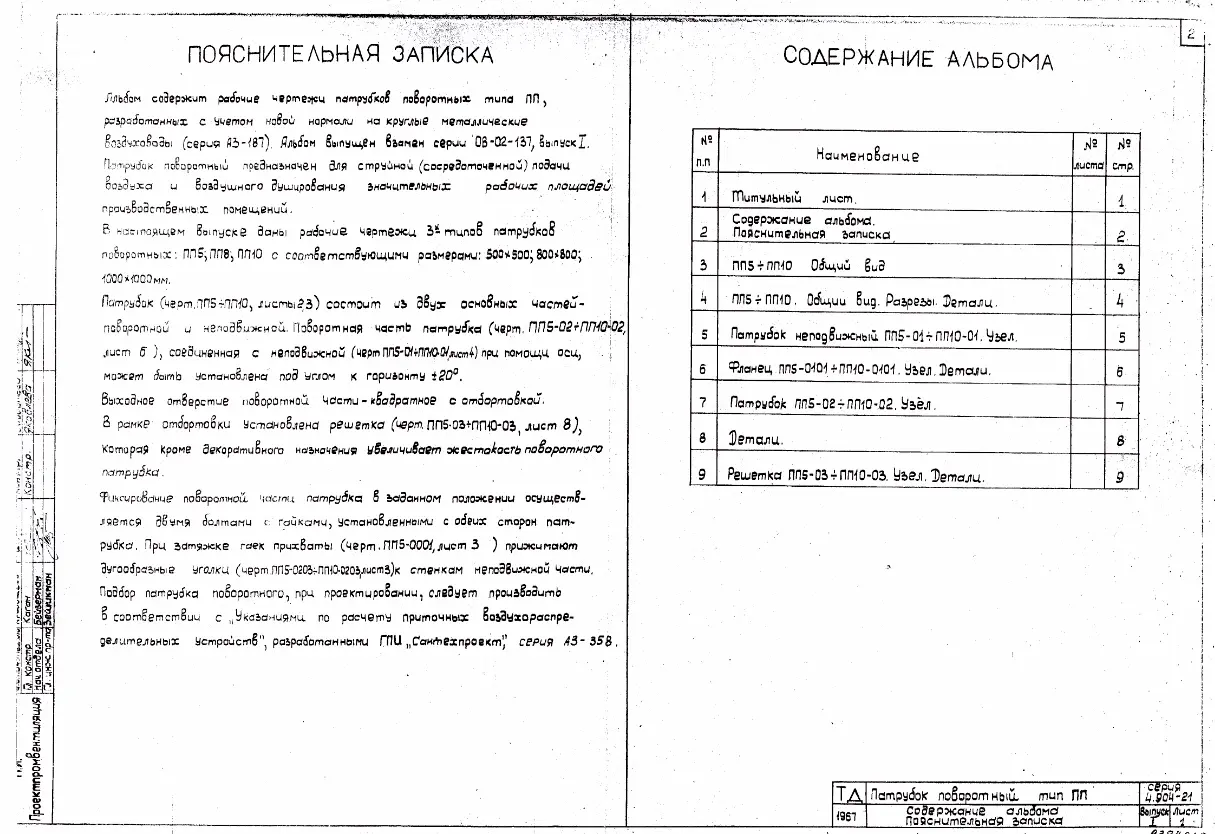 ПОЯСНИТЕЛЬНАЯ ЗАПИСКА
Альбом содержит рабочие чертежи патрубков поворотных типа ПП,
разработанных с учетом новой нормали на круглые металлические
воздуховоды (серия А3-187). Альбом выпущен взамен серии 0В-02-137, выпуск I.
Патрубок поворотный предназначен для струйной (сосредоточенной) подачи
воздуха и воздушного душирования значительных рабочих площадей
производственных помещений.
В настоящем выпуске даны рабочие чертежи 3х типов патрубков
поворотных: ПП5; ПП8; ПП10 с соответствующими размерами: 500×500; 800×800;
1000×1000мм.
Патрубок (черт. ПП5÷ПП10, листы 2,3) состоит из двух основных частей-
поворотной и неподвижной. Поворотная часть патрубка (черт. ПП5-02÷ПП10-02,
лист 6 ), соединенная с неподвижной (черт ПП5-01÷ПП10-01, лист 4) при помощи оси,
может быть установлена под углом к горизонту ±20°.
Выходное отверстие поворотной части-квадратное с отбортовкой.
В рамке отбортовки установлена решетка (черт. ПП5-03÷ПП10-03, лист 8),
которая кроме декоративного назначения увеличивает жесткость поворотного
патрубка.
Фиксирование поворотной части патрубка в заданном положении осуществ-
ляется двумя болтами с гайками, установленными с обеих сторон пат-
рубка. При затяжке гаек прихваты (черт. ПП5-0001, лист 3 ) прижимают
дугообразные уголки (черт ПП5-0203÷ПП10-0203, лист 3) к стенкам неподвижной части.
Подбор патрубка поворотного, при проектировании, следует производить
в соответствии с „Указаниями по расчету приточных воздухораспре-
делительных устройств", разработанными ГПИ „Сантехпроект", серия А3-358.
2
СОДЕРЖАНИЕ АЛЬБОМА
№ п.п Наименование № листа № стр.
1 Титульный лист. 1
2 Содержание альбома. Пояснительная записка 2
3 ПП5÷ПП10 Общий вид 3
4 ПП5÷ПП10. Общий вид. Разрезы. Детали. 4
5 Патрубок неподвижный ПП5-01÷ПП10-01. Узел. 5
6 Фланец ПП5-0101÷ПП10-0101. Узел. Детали. 6
7 Патрубок ПП5-02÷ПП10-02. Узел. 7
8 Детали. 8
9 Решетка ПП5-03÷ПП10-03. Узел. Детали. 9
ТД Патрубок поворотный тип ПП серия 4.904-21
1967 Содержание альбома Пояснительная записка Выпуск I Лист 1
Проектпромвентиляция
Гл. констр. Каган
Нач отдела Бейберман
Констр. Яковлева